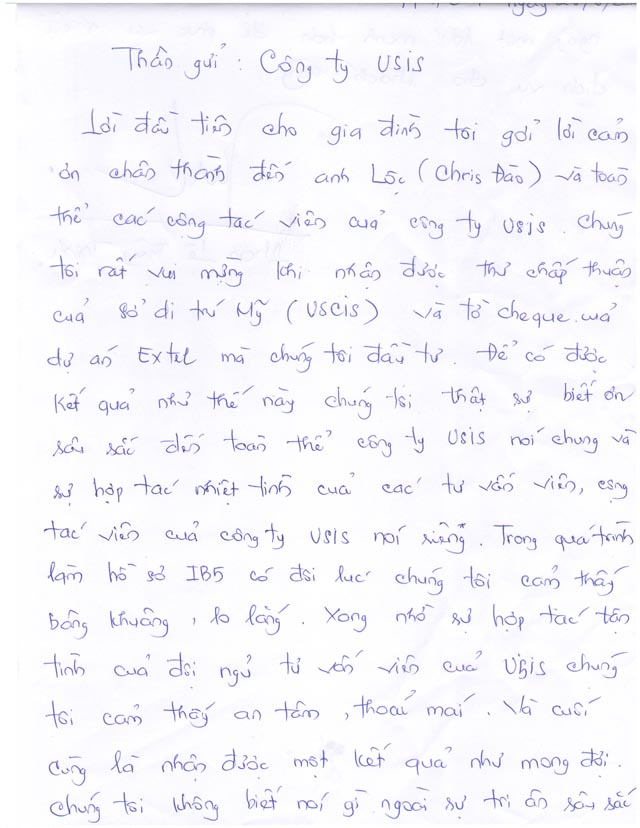 ngày
Thân gửi : Công ty USIS
Lời đầu tiên cho gia đình tôi gởi lời cảm
ơn chân thành đến anh Lộc (Chris Đào) và toàn
thể các cộng tác viên của công ty USIS. Chúng
tôi rất vui mừng khi nhận được thư chấp thuận
của sở di trú Mỹ (USCIS) và tờ cheque của
dự án Extel mà chúng tôi đầu tư. Để có được
kết quả như thế này chúng tôi thật sự biết ơn
sâu sắc đến toàn thể công ty USIS nói chung và
sự hợp tác nhiệt tình của các tư vấn viên, cộng
tác viên của công ty USIS nói riêng. Trong quá trình
làm hồ sơ IB5 có đôi lúc chúng tôi cảm thấy
bâng khuâng, lo lắng. Xong nhờ sự hợp tác tận
tình của đội ngủ tư vấn viên của USIS chúng
tôi cảm thấy an tâm, thoải mái. Và cuối
cùng là nhận được một kết quả như mong đợi.
chúng tôi không biết nói gì ngoài sự tri ân sâu sắc